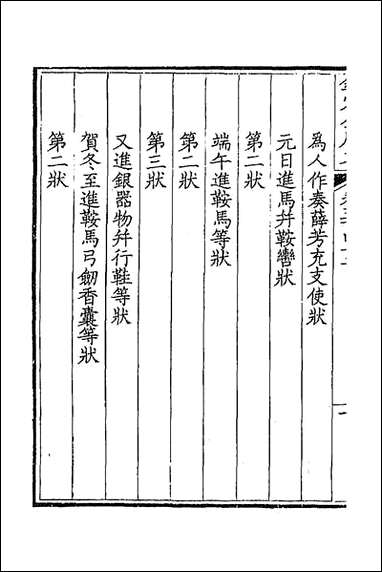 爲人作奏薛芳充支使狀
元日進馬并鞍轡狀
第二狀
端午進鞍馬等狀
第二狀
第三狀
又進銀器物并行鞋等狀
賀冬至進鞍馬弓劒香囊等狀
第二狀